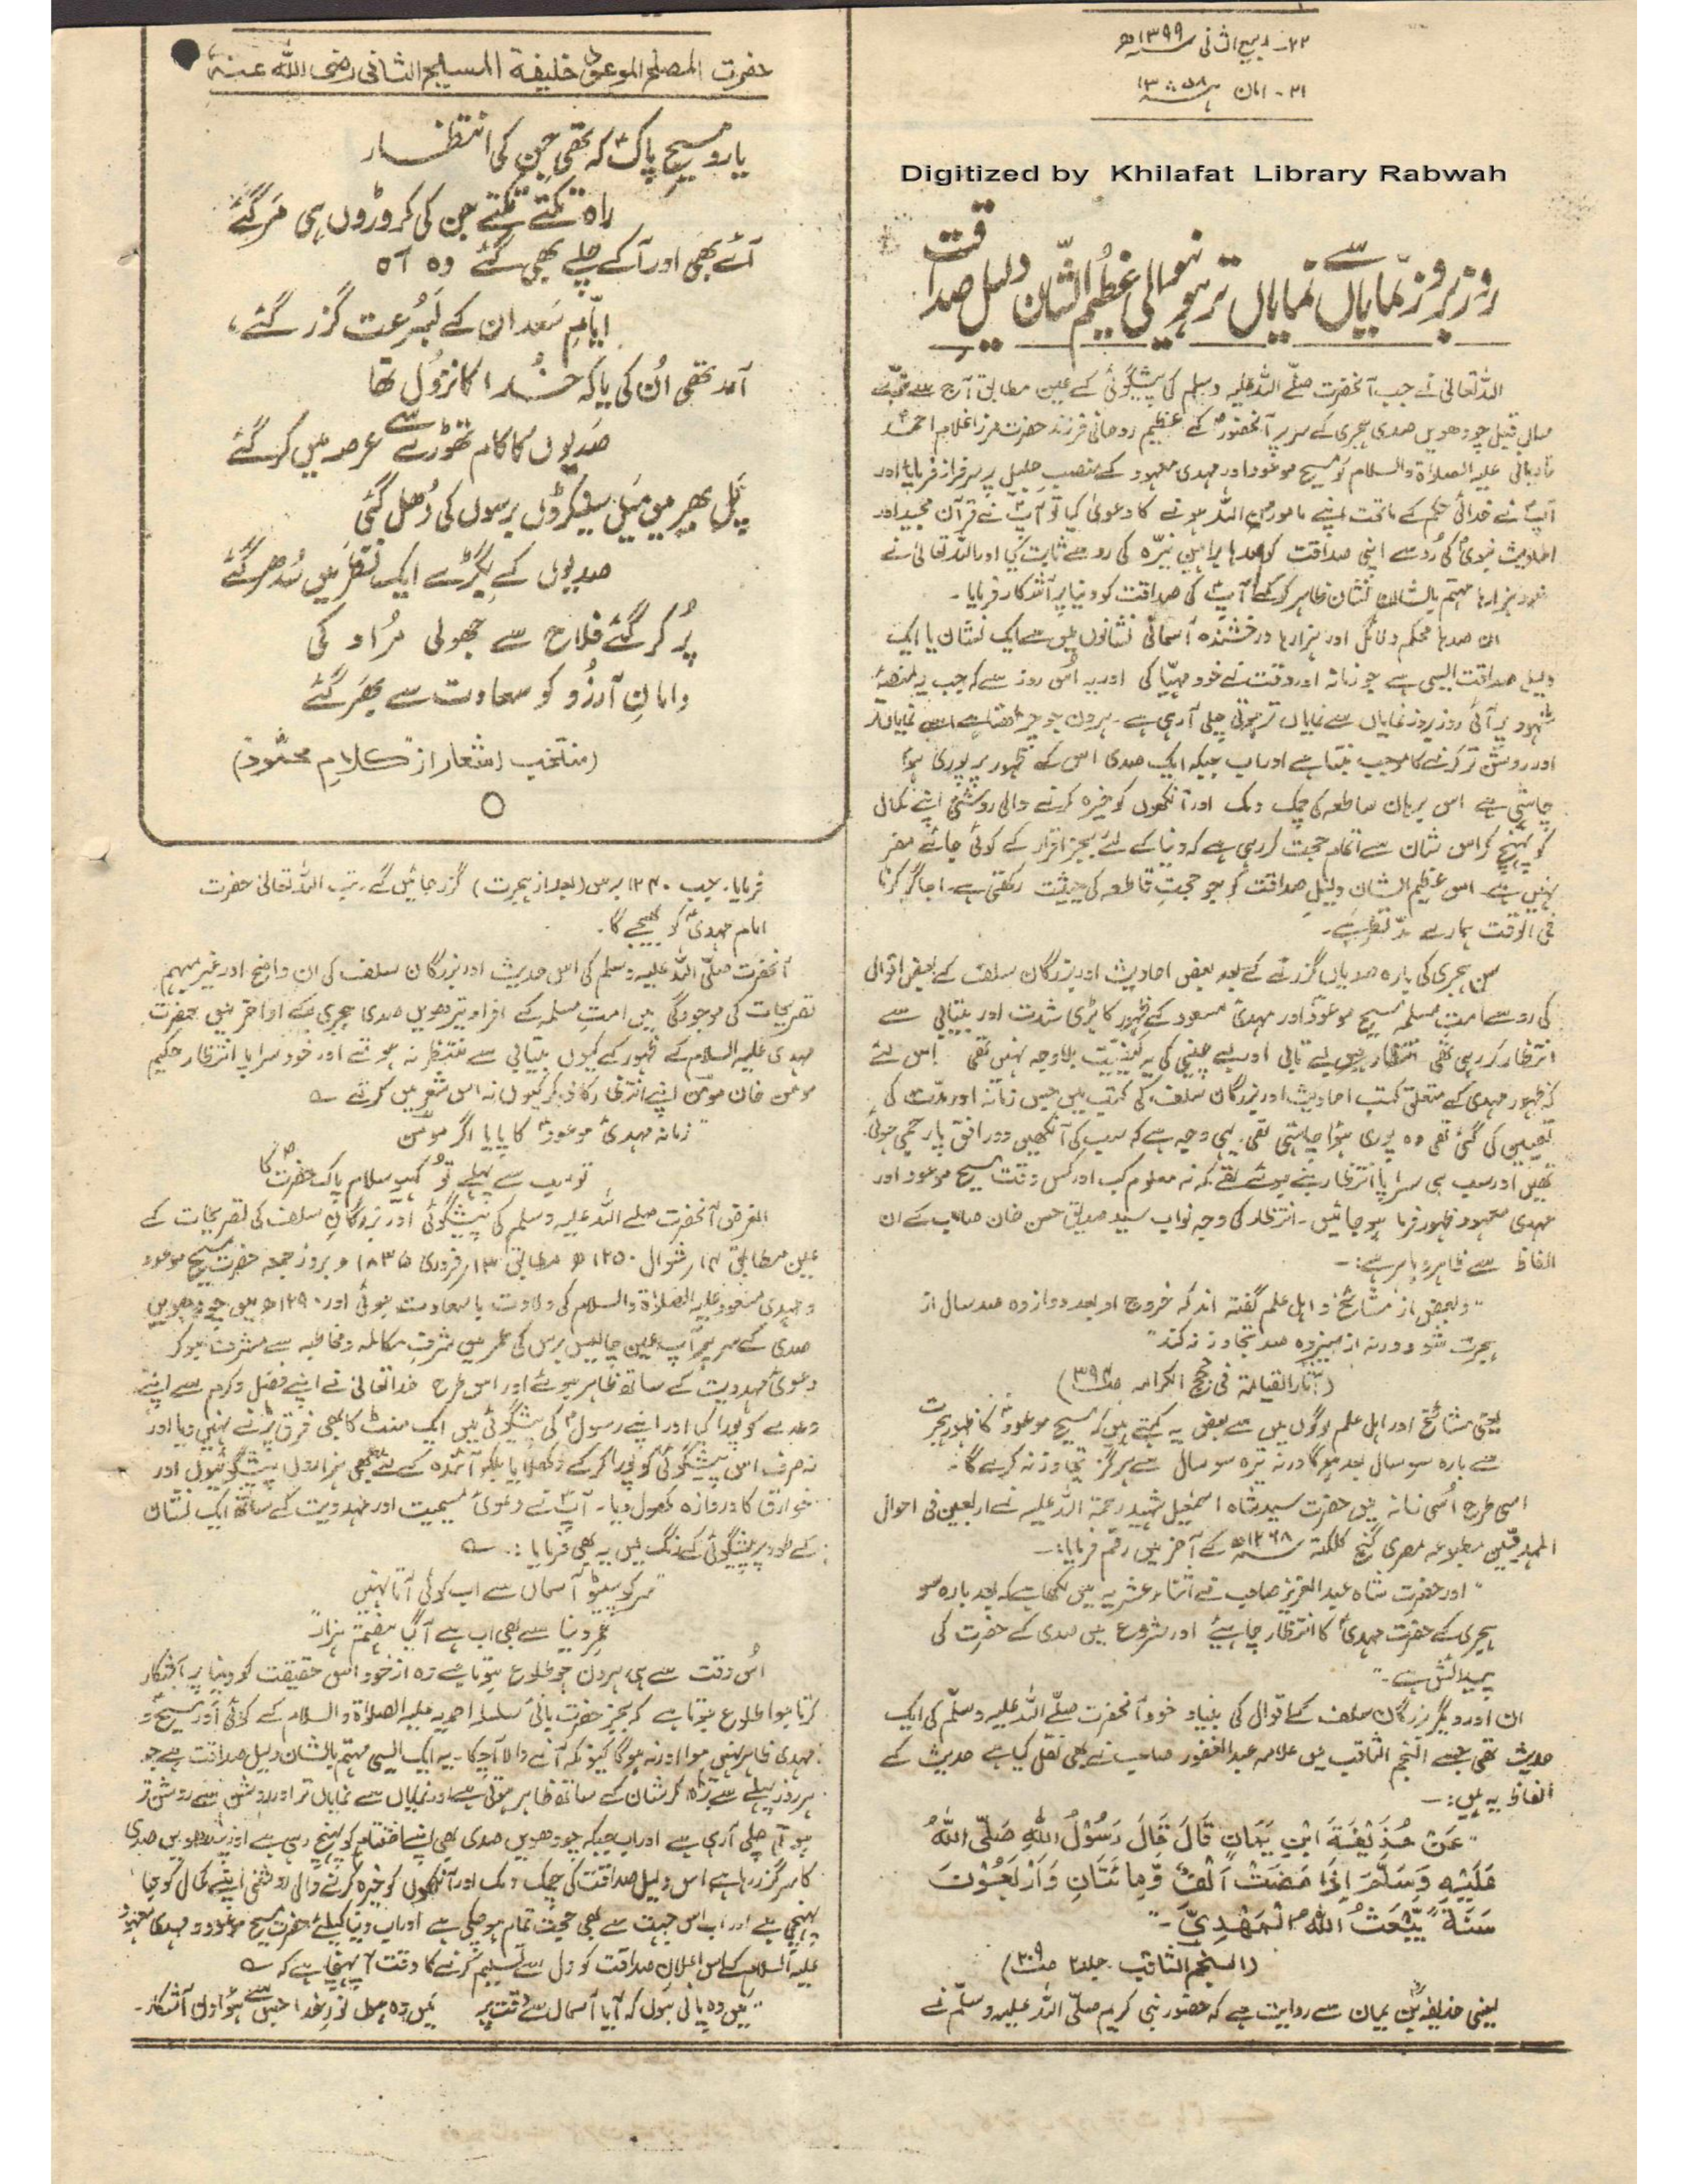 ۲۲۔ ربیع الثانی ۱۳۹۹ھ
۲۱۔ امان ۱۳۵۸ ہش
Digitized by Khilafat Library Rabwah
روز بروز نمایاں سے نمایاں تر ہونیوالی عظیم الشّان دلیل صداقت
اللہ تعالیٰ نے جب آنحضرت صلّے اللہ علیہ وسلم کی پیشگوئی کے عین مطابق آج سے نوّے
سال قبل چودھویں صدی ہجری کے سر پر آنحضورؐ کے عظیم روحانی فرزند حضرت مرزا غلام احمد
قادیانی علیہ الصلوٰۃ والسلام کو مسیح موعود اور مہدی معہود کے منصب جلیل پر سرفراز فرمایا اور
آپؑ نے خدائی حکم کے ماتحت اپنے مامور من اللہ ہونے کا دعویٰ کیا تو آپؑ نے قرآن مجید اور
احادیث نبویؐ کی رُو سے اپنی صداقت کو صدہا براہین نیّرہ کی رو سے ثابت کیا اور اللہ تعالیٰ نے
خود ہزارہا مہتم بالشان نشان ظاہر کرکے آپؑ کی صداقت کو دنیا پر آشکار فرمایا۔
ان صدہا محکم دلائل اور ہزارہا درخشندہ آسمانی نشانوں میں سے ایک نشان یا ایک
دلیل صداقت ایسی ہے جو زمانہ اور وقت نے خود مہیّا کی اور یہ اُس روز سے کہ جب یہ منصۂ
شہود پر آئی روز بروز نمایاں سے نمایاں تر ہوتی چلی آ رہی ہے۔ ہر دن جو چڑھتا ہے اسے نمایاں تر
اور روشن تر کرنے کا موجب بنتا ہے اور اب جبکہ ایک صدی اس کے ظہور پر پوری ہوا
چاہتی ہے اس برہان ساطعہ کی چمک دمک اور آنکھوں کو خیرہ کرنے والی روشنی اپنے کمال
کو پہنچ کر اس شان سے اتمام حجت کر رہی ہے کہ دنیا کے لئے بجز اقرار کے کوئی جائے مفر
نہیں ہے۔ اس عظیم الشان دلیلِ صداقت کو جو حجتِ قاطعہ کی حیثیت رکھتی ہے۔ اجاگر کرنا
فی الوقت ہمارے مدّنظر ہے۔
سن ہجری کی بارہ صدیاں گزرنے کے بعد بعض احادیث اور بزرگان سلف کے بعض اقوال
کی رو سے امت مسلمہ مسیح موعودؑ اور مہدیٔ مسعود کے ظہور کا بڑی شدت اور بیتابی سے
انتظار کر رہی تھی انتظار میں بے تابی اور بے چینی کی یہ کیفیّت بلاوجہ نہیں تھی اس لئے
کہ ظہور مہدی کے متعلق کتب احادیث اور بزرگان سلف کی کتب میں جس زمانہ اور مدّت کی
تعیین کی گئی تھی وہ پوری ہوا چاہتی تھی۔ یہی وجہ ہے کہ سب کی آنکھیں دور افق پار جمی ہوئی
تھیں اور سب ہی سراپا انتظار بنے ہوئے تھے کہ نہ معلوم کب اور کس وقت مسیح موعود اور
مہدی معہود ظہور فرما ہو جائیں۔ انتظار کی وجہ نواب سید صدیق حسن خان صاحب کے ان
الفاظ سے ظاہر و باہر ہے:۔
"و بعض از مشائخ و اہل علم گفتہ اند کہ خروج او بعد دوازدہ صد سال از
ہجرت شود ورنہ از سیزدہ صد تجاوز نہ کند"
(آثار القیامہ فی حجج الکرامہ صفحہ ۳۹۴)
یعنی مشائخ اور اہل علم لوگوں میں سے بعض یہ کہتے ہیں کہ مسیح موعودؑ کا ظہور ہجرت
سے بارہ سو سال بعد ہوگا ورنہ تیرہ سو سال سے ہرگز تجاوز نہ کرے گا۔
اسی طرح اُسی زمانہ میں حضرت سید شاہ اسمٰعیل شہید رحمۃ اللہ علیہ نے اربعین فی احوال
المہدیّین مطبوعہ مصری گنج کلکتہ ۱۲۶۸ھ کے آخر میں رقم فرمایا:۔
"اور حضرت شاہ عبد العزیز صاحب نے اثناء عشریہ میں لکھا ہے کہ بعد بارہ سو
ہجری کے حضرت مہدیؑ کا انتظار چاہیئے اور شروع میں صدی کے حضرت کی
پیدائش ہے۔"
ان اور دیگر بزرگان سلف کے اقوال کی بنیاد خود آنحضرت صلّے اللہ علیہ وسلّم کی ایک
حدیث تھی جسے النجم الثاقب میں علامہ عبد الغفور صاحب نے بھی نقل کیا ہے حدیث کے
الفاظ یہ ہیں:۔
"عَنْ حُذَيْفَةَ ابْنِ يَمَانٍ قَالَ قَالَ رَسُوْلُ اللّٰهِ صَلَّى اللّٰهُ
عَلَيْهِ وَسَلَّمَ اِذَا مَضَتْ اَلْفٌ وَّمِائَتَانِ وَاَرْبَعُوْنَ
سَنَةً يَّبْعَثُ اللّٰهُ الْمَهْدِيَّ۔"
(النجم الثاقب جلد ۲ صفحہ ۲۰۹)
یعنی حذیفہؓ بن یمان سے روایت ہے کہ حضور نبی کریم صلّی اللہ علیہ وسلّم نے
حضرت المصلح الموعود خلیفۃ المسیح الثانی رضی اللہ عنہ
یارو مسیحِ پاکؑ کہ تھی جن کی انتظار
راہ تکتے تکتے جن کی کروڑوں ہی مَر گئے
آئے بھی اور آکے چلے بھی گئے وہ آہ
ایّامِ سَعد ان کے بَسُرعت گزر گئے،
آمد تھی اُن کی یا کہ خُدا کا نزُول تھا
صَدیوں کا کام تھوڑے سے عرصہ میں کر گئے
پَل بھر میں مَیل سینکڑوں برسوں کی دُھل گئی
صدیوں کے بگڑے ایک نَظَر میں سُدھر گئے
پُر کر گئے فلاح سے جھولی مُراد کی
دامانِ آرزُو کو سعادت سے بھَر گئے
(منتخب اشعار از "کلامِ محمُود")
فرمایا۔ جب ۱۲۴۰ برس (بعد از ہجرت) گزر جائیں گے۔ تب اللہ تعالیٰ حضرت
امام مہدیؑ کو بھیجے گا۔
آنحضرت صلّی اللہ علیہ وسلم کی اس حدیث اور بزرگان سلف کی ان واضح اور غیر مبہم
تصریحات کی موجودگی میں امت مسلمہ کے افراد تیرھویں صدی ہجری کے اواخر میں حضرت
مہدی علیہ السلام کے ظہور کے کیوں بیتابی سے منتظر نہ ہوتے اور خود سراپا انتظار حکیم
مومن خان مومنؔ اپنے انتظار کا ذکر کیوں نہ اس شعر میں کرتے ؎
"زمانہ مہدیٔ موعودؑ کا پایا اگر مومنؔ
تو سب سے پہلے تُو کہیو سلام پاک حضرتؐ کا
الغرض آنحضرت صلے اللہ علیہ وسلم کی پیشگوئی اور بزرگانِ سلف کی تصریحات کے
عین مطابق ۱۴ شوال ۱۲۵۰ھ مطابق ۱۳ فروری ۱۸۳۵ء بروز جمعہ حضرت مسیح موعود
و مہدی مسعود علیہ الصلوٰۃ والسلام کی ولادت با سعادت ہوئی اور ۱۲۹۰ھ میں چودھویں
صدی کے سر پر آپ عین چالیس برس کی عمر میں شرف مکالمہ و مخاطبہ سے مشرف ہو کر
دعویٰ مہدویت کے ساتھ ظاہر ہوئے اور اس طرح خدا تعالیٰ نے اپنے فضل و کرم سے اپنے
وعدے کو پورا کیا اور اپنے رسولؐ کی پیشگوئی میں ایک منٹ کا بھی فرق پڑنے نہیں دیا اور
نہ صرف اس پیشگوئی کو پورا کرکے دکھلایا بلکہ آئندہ کے لئے بھی ہزاروں پیشگوئیوں اور
خوارق کا دروازہ کھول دیا۔ آپؑ نے دعویٰ مسیحیت اور مہدویت کے ساتھ ایک نشان
کے طور پر پیشگوئی کے رنگ میں یہ بھی فرمایا :۔ ؎
"سر کو پیٹو آسماں سے اب کوئی آتا نہیں
عُمرِ دنیا سے بھی اب ہے آگیا ہفتم ہزار"
اُس وقت سے ہی ہر دن جو طلوع ہوتا ہے وہ از خود اس حقیقت کو دنیا پر آشکار
کرتا ہوا طلوع ہوتا ہے کہ بجز حضرت بانیٔ سلسلہ احمدیہ علیہ الصلوٰۃ والسلام کے کوئی اور مسیحؑ و
مہدی ظاہر نہیں ہوا اور نہ ہوگا کیونکہ آنے والا آچکا۔ یہ ایک ایسی مہتم بالشان دلیل صداقت ہے جو
ہر روز پہلے سے بڑھ کر شان کے ساتھ ظاہر ہوتی ہے اور نمایاں سے نمایاں تر اور روشن سے روشن تر
ہوتی چلی آرہی ہے اور اب جبکہ چودھویں صدی بھی اپنے اختتام کو پہنچ رہی ہے اور پندرھویں صدی
کا سر گزر رہا ہے اس دلیل صداقت کی چمک دمک اور آنکھوں کو خیرہ کرنے والی روشنی اپنے کمال کو جا
پہنچی ہے اور اب اس جہت سے بھی حجت تمام ہو چکی ہے اور اب دنیا کیلئے حضرت مسیح موعود و مہدی معہود
علیہ السلام کے اس اعلان صداقت کو دل سے تسلیم کرنے کا وقت آ پہنچا ہے کہ ؎
"میں وہ پانی ہوں کہ آیا آسماں سے وقت پر میں وہ ہوں نورِ خدا جس سے ہوا دن آشکار۔